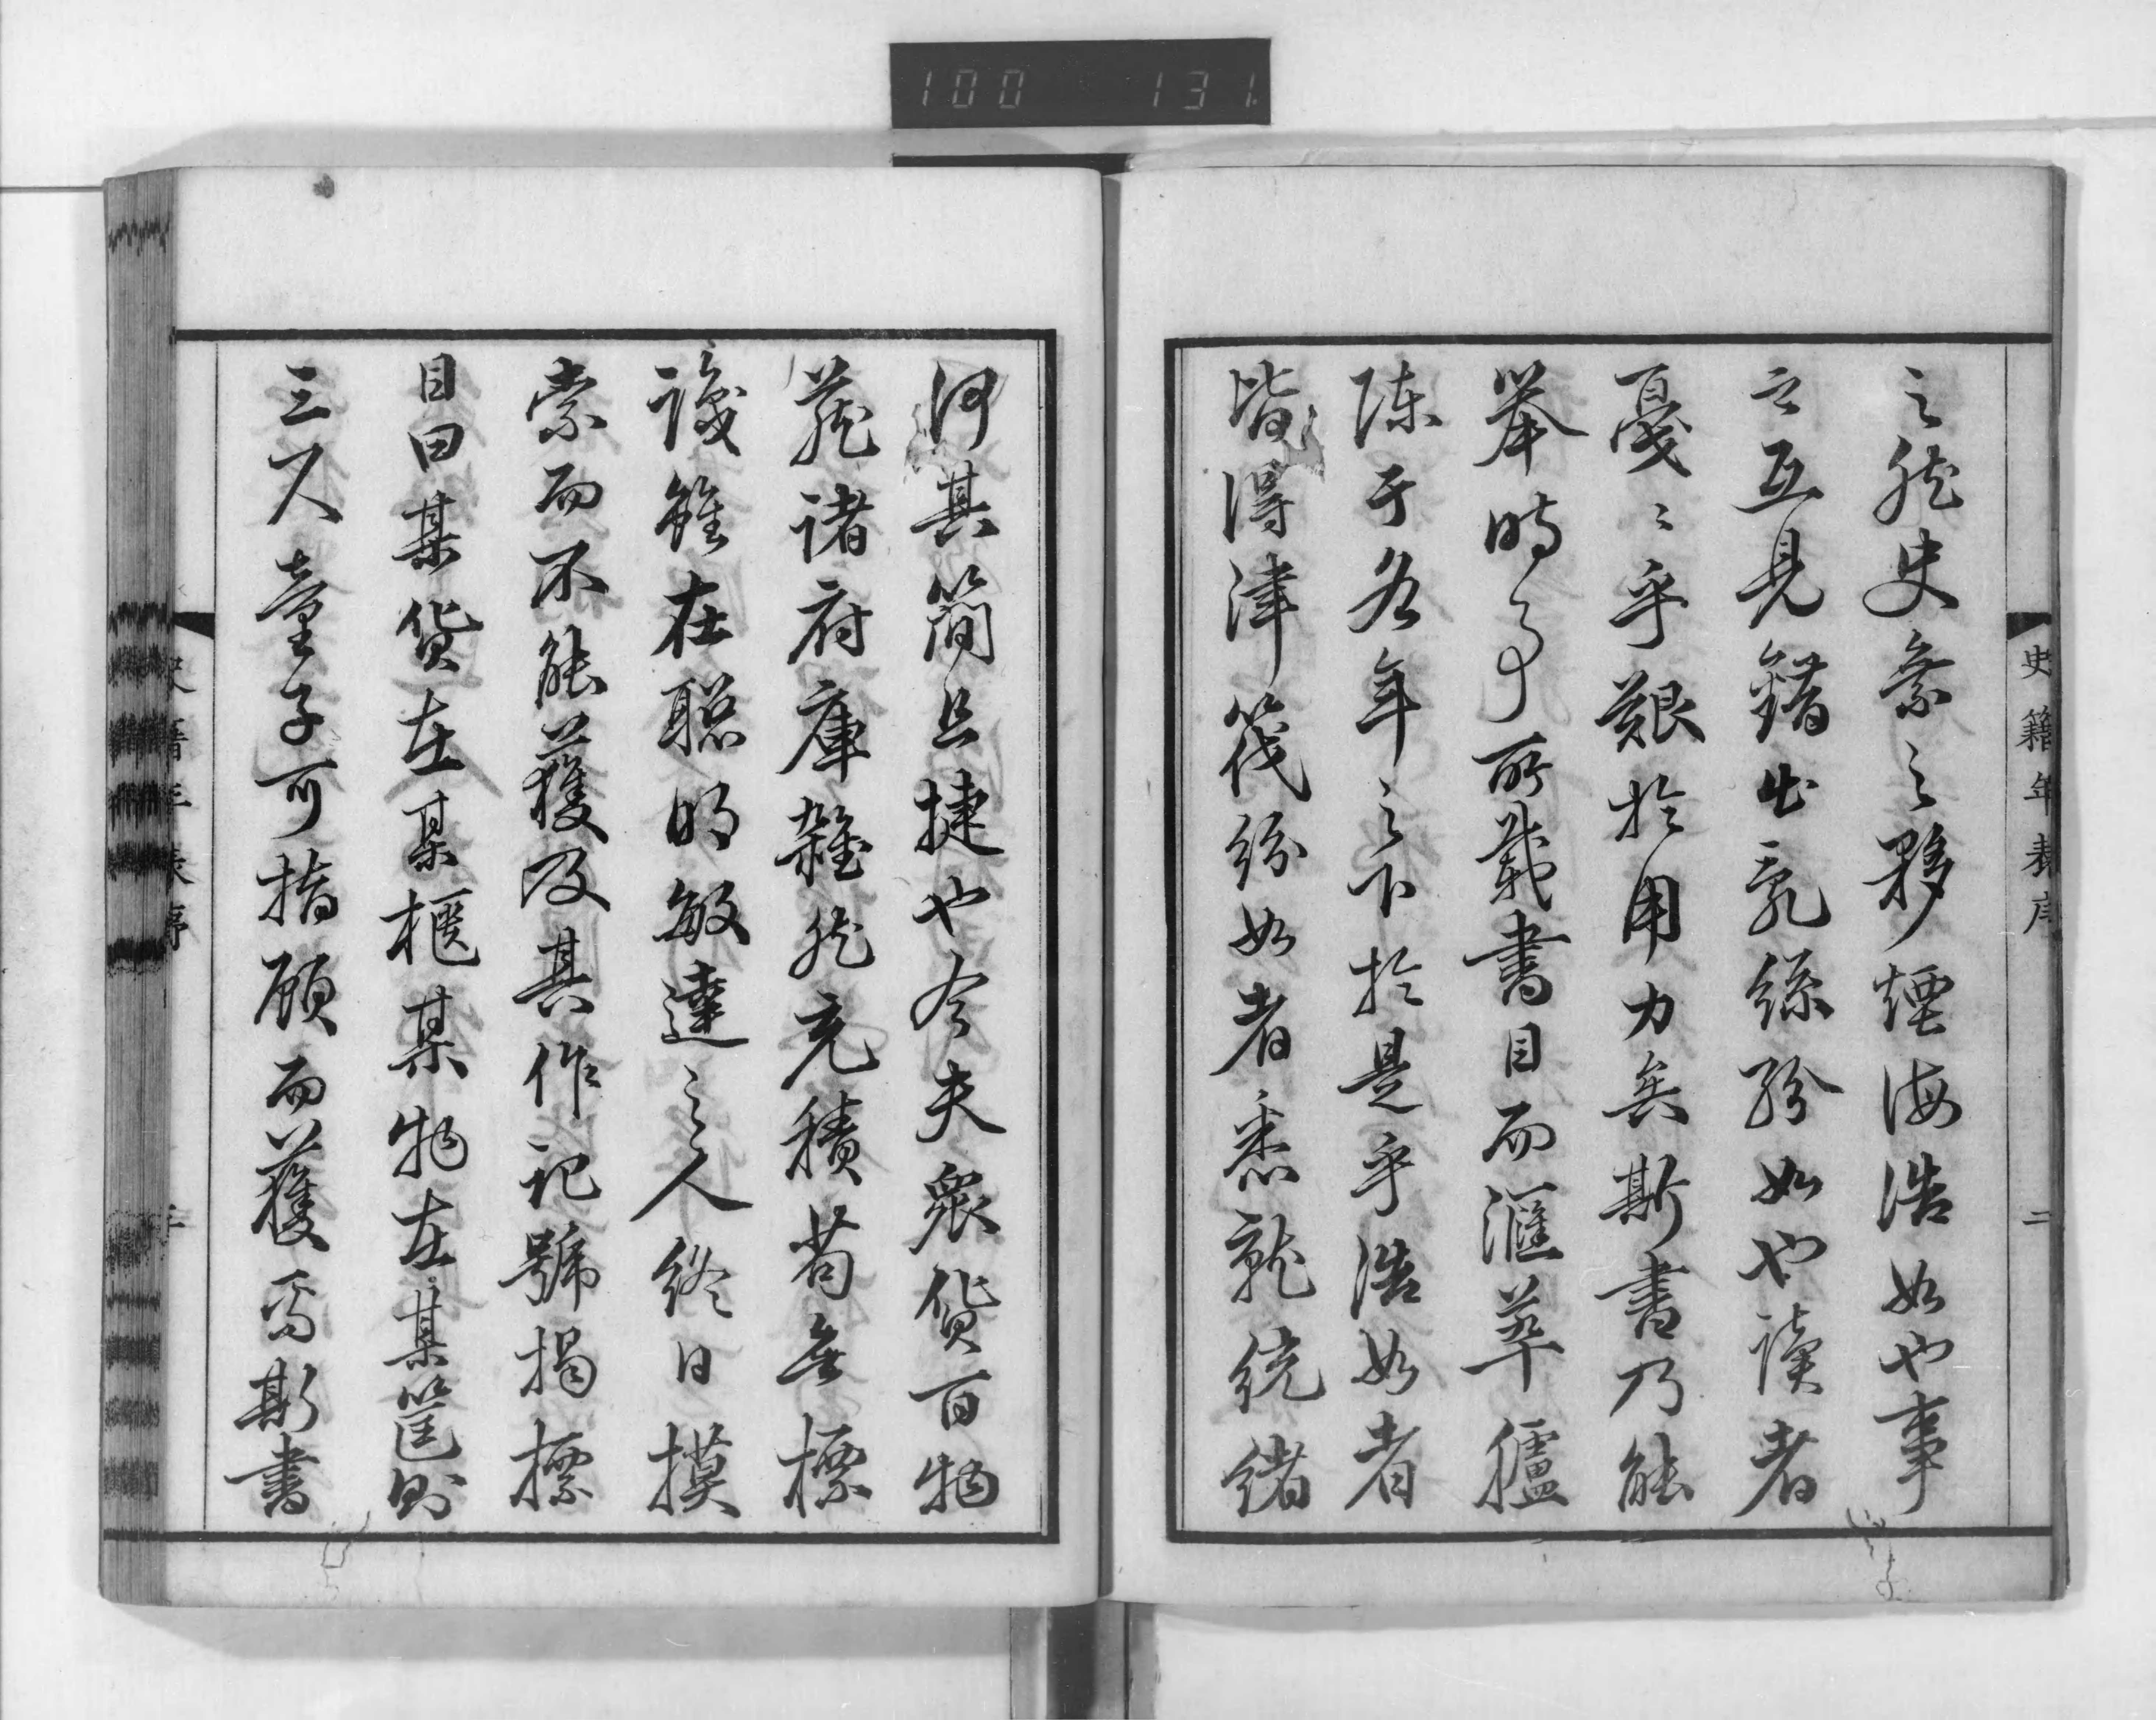 100 131
史籍年表序 二
之然史乘之夥煙海浩如也事
之互見錯出亂絲紛如也讀者
戛〻乎艱於用力矣斯書乃能
舉時事所載書目而滙萃臚
陳于各年之下於是乎浩如者
皆得津筏紛如者悉就統緒
何其簡且捷也今夫衆貨百物
藏諸府庫雜然充積苟無標
識雖在聡明敏達之人終日摸
索而不能獲及其作記號揭標
目曰某貨在某柜某物在某筐則
三尺童子可指顧而獲焉斯書